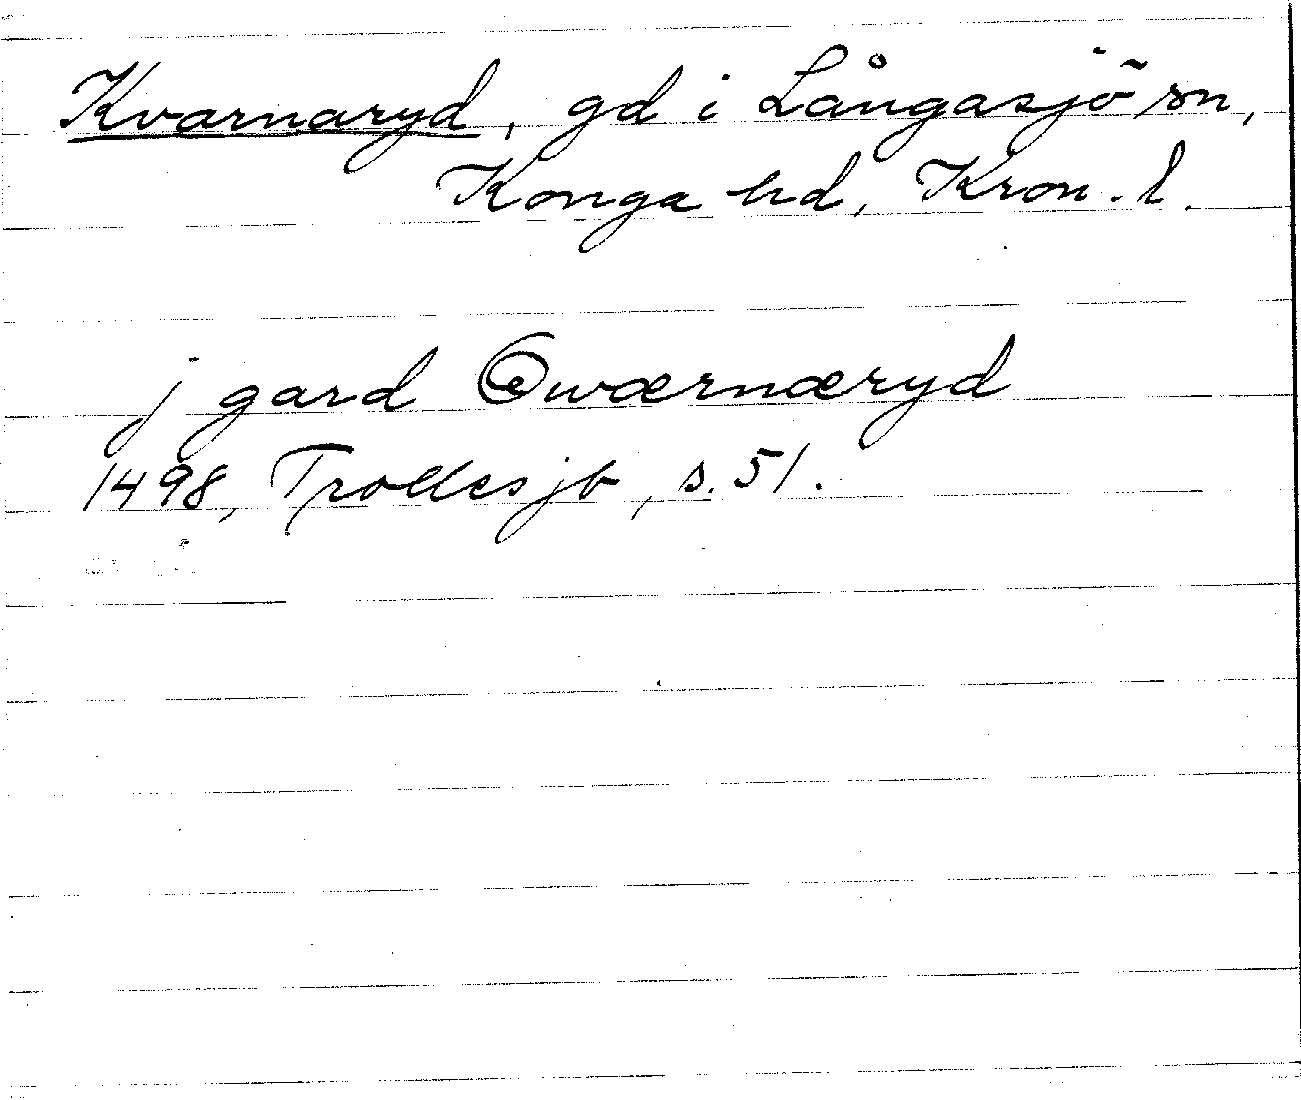 Kvarnaryd, gd i Långasjö sn,
Konga hd, Kron. l.
j gard Qwærnæryd
1498, Trolles jb, s. 51.